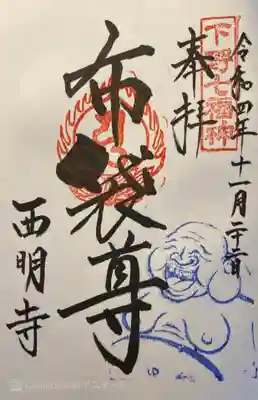 令和四年十一月二十二日
下野七福神
奉拝
布袋尊
西明寺